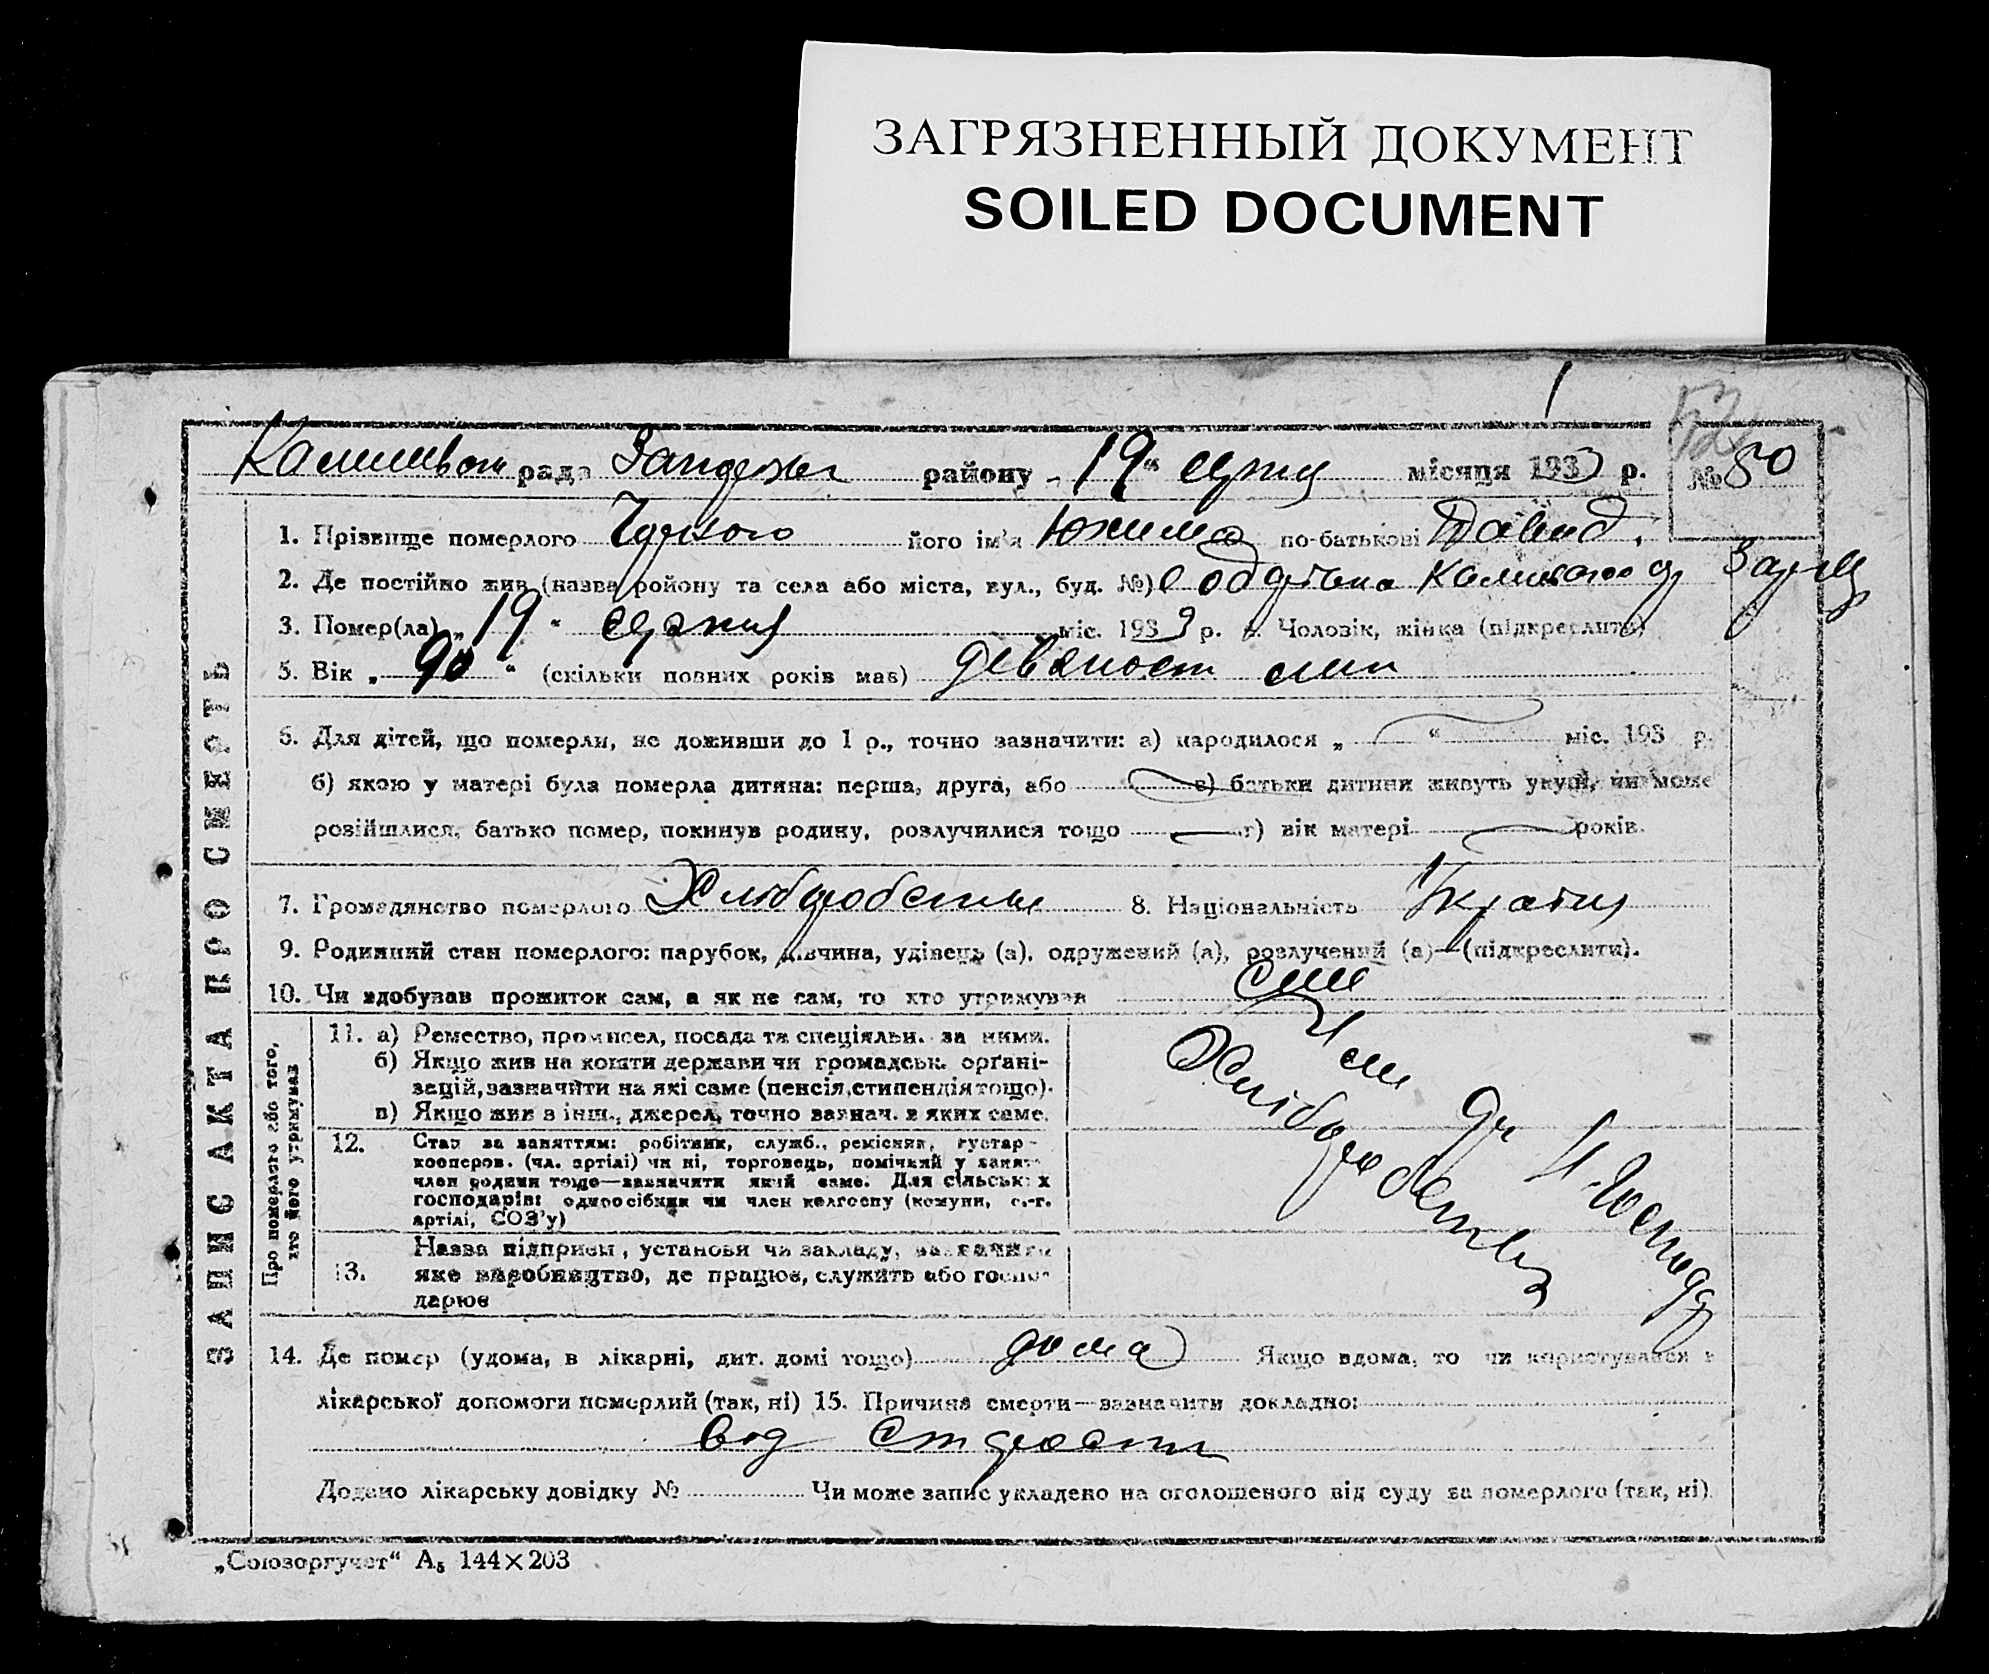 ЗАГРЯЗНЕННЫЙ ДОКУМЕНТ
SOILED DOCUMENT
рада району „19“ серпня місяця 1933 р. № 80
1. Прізвище померлого його ім'я Юхима по-батькові Давид.
2. Де постійно жив (назва району та села або міста, вул., буд. №)
3. Помер(ла) „19“ серпня міс. 1933 р. Чоловік, жінка (підкреслити)
5. Вік „90“ (скільки повних років мав) девяност
6. Для дітей, що померли, не доживши до 1 р., точно зазначити: а) народилося „ “ міс. 193 р.
б) якою у матері була померла дитина: перша, друга, або в) батьки дитини живуть укупі, чи може
розійшлися, батько помер, покинув родину, розлучилися тощо г) вік матері років.
7. Громадянство померлого 8. Національність
9. Родинний стан померлого: парубок, дівчина, удівець (а), одружений (а), розлучений (а)—(підкреслити).
10. Чи здобував прожиток сам, а як не сам, то хто утримував
ЗАПИС АКТА ПРО СМЕРТЬ
Про померлого або того, хто його утримував
11. а) Ремество, промисел, посада та спеціяльн. за ними.
б) Якщо жив на кошти держави чи громадськ. органі-
зацій, зазначити на які саме (пенсія, стипендія тощо).
в) Якщо жив з інш., джерел, точно зазнач. з яких саме.
12. Стан за заняттям: робітник, служб., ремісник, кустар
кооперов. (чл. артілі) чи ні, торговець, помічний у занят.
член родини тощо—зазначити який саме. Для сільських
господарів: одноосібник чи член колгоспу (комуни, с.-г.
артілі, СОЗ'у)
13. Назва підприєм., установи чи закладу, зазначити
яке виробництво, де працює, служить або госпо-
дарює
14. Де помер (удома, в лікарні, дит. домі тощо) дома Якщо вдома, то чи користувався з
лікарської допомоги померлий (так, ні) 15. Причина смерти—зазначити докладно:
вод старости
Додано лікарську довідку № Чи може запис укладено на оголошеного від суду за померлого (так, ні)
„Союзоргучет“ А₅ 144×203